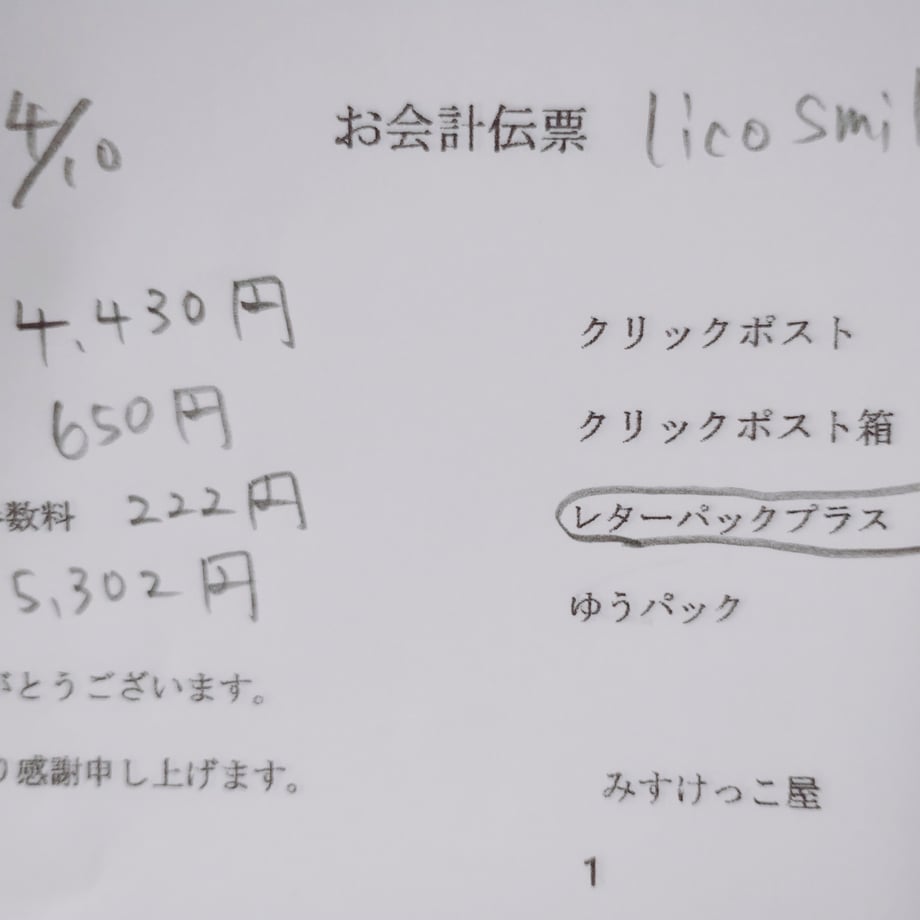 4/10 お会計伝票 lico smil
4,430円 クリックポスト
650円 クリックポスト箱
数料 222円 レターパックプラス
5,302円 ゆうパック
がとうございます。
り感謝申し上げます。
みすけっこ屋
1